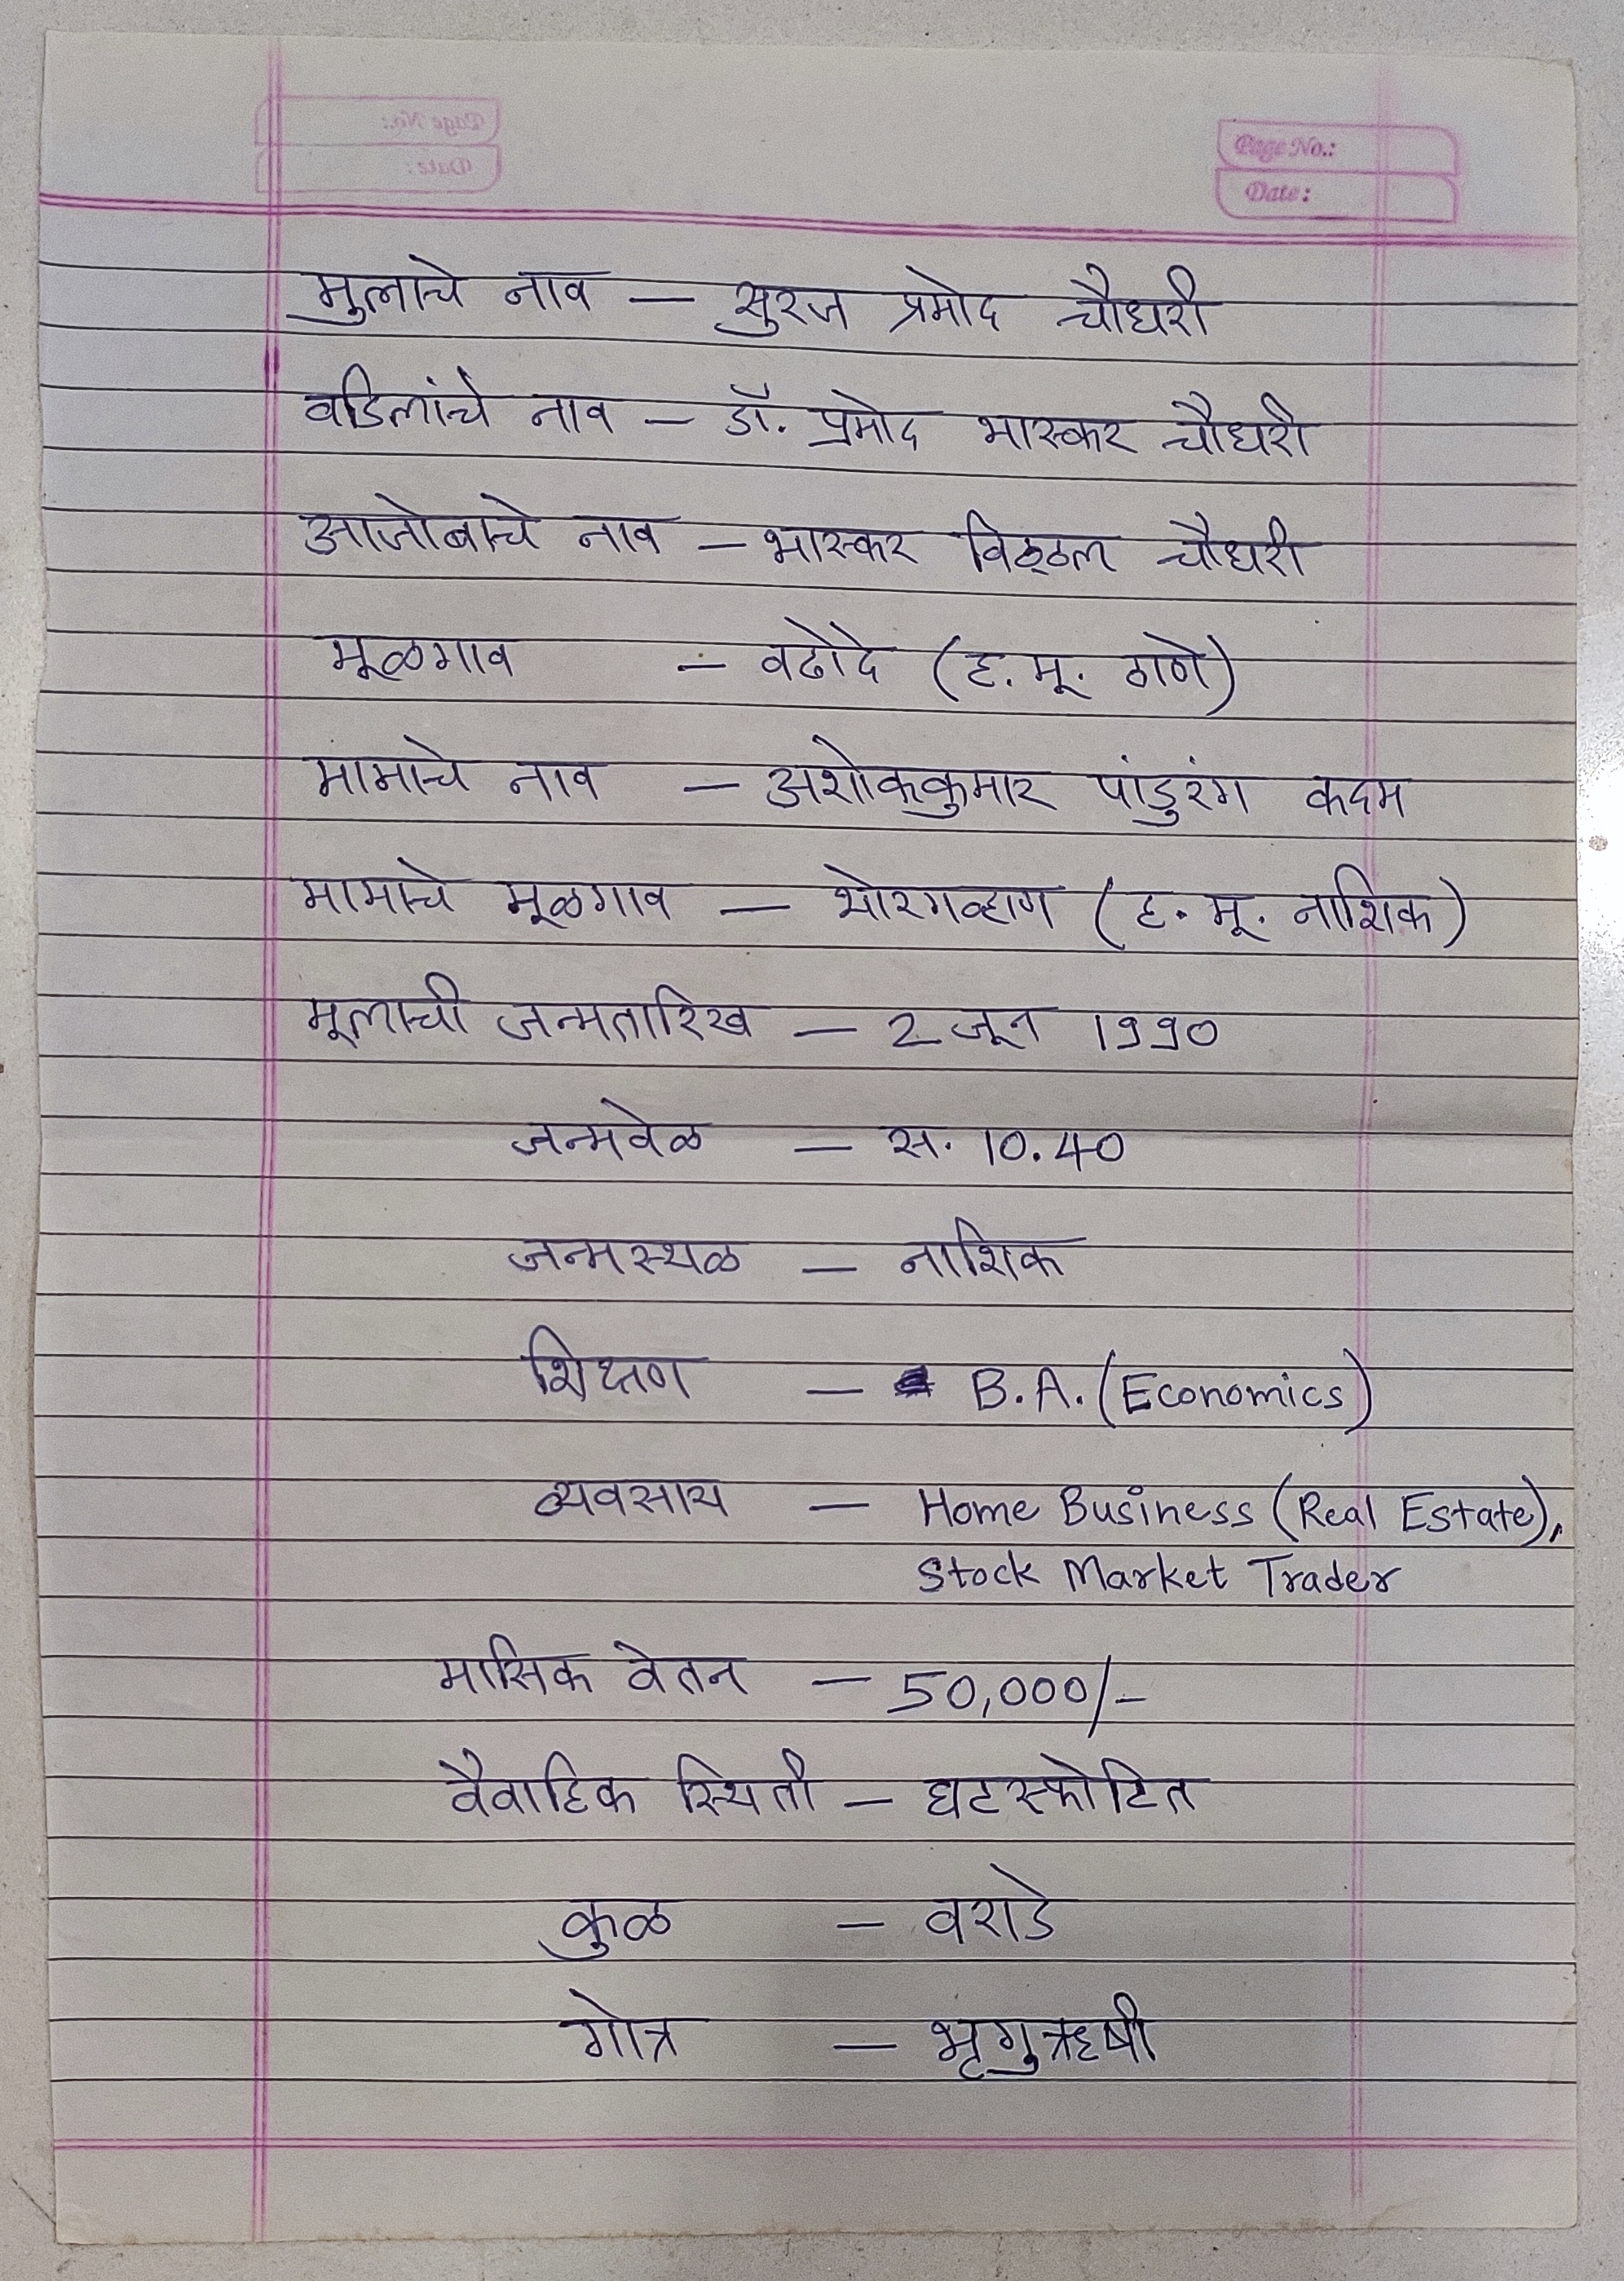 Page No.:
Date:
मुलाचे नाव — सुरज प्रमोद चौधरी
वडिलांचे नाव — डॉ. प्रमोद भास्कर चौधरी
आजोबाचे नाव — भास्कर विठ्ठल चौधरी
मूळगाव — वढोदे (ह. मू. ठाणे)
मामाचे नाव — अशोककुमार पांडुरंग कदम
मामाचे मूळगाव — भोरगव्हाण (ह. मू. नाशिक)
मूलाची जन्मतारिख — 2 जून 1990
जन्मवेळ — स. 10.40
जन्मस्थळ — नाशिक
शिक्षण — B.A. (Economics)
व्यवसाय — Home Business (Real Estate),
Stock Market Trader
मासिक वेतन — 50,000/-
वैवाहिक स्थिती — घटस्फोटित
कुळ — वराडे
गोत्र — भृगुऋषी